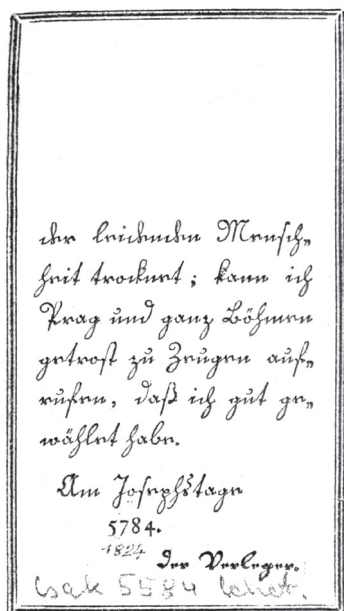 der leidenden Mensch„
heit trocknet; kann ich
Prag und ganz Böhmen
getrost zu Zeugen auf„
rufen, daß ich gut ge„
wählet habe.
Am Josephstage
5784.
1824
Der Verleger.
Csak 5584 lehet.